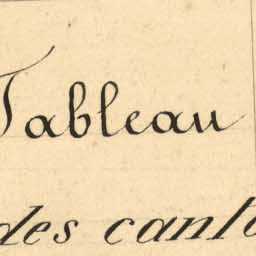 Tableau
des cant